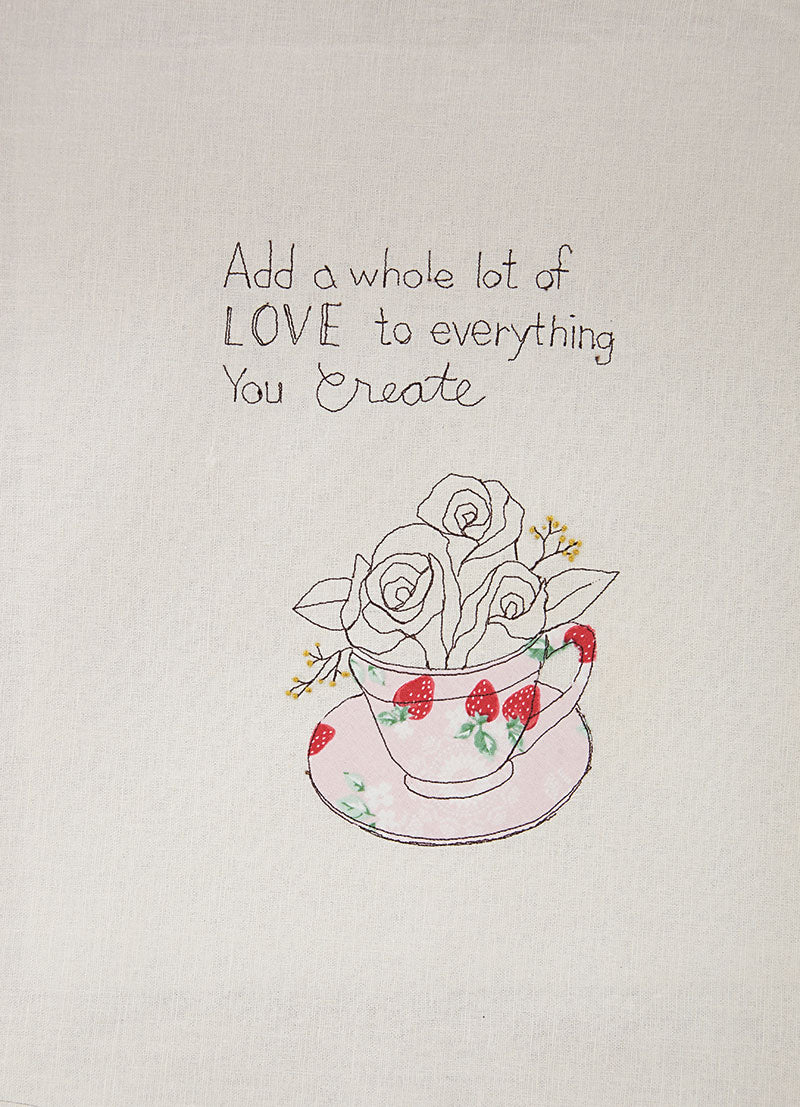 Add a whole lot of
LOVE to everything
You create